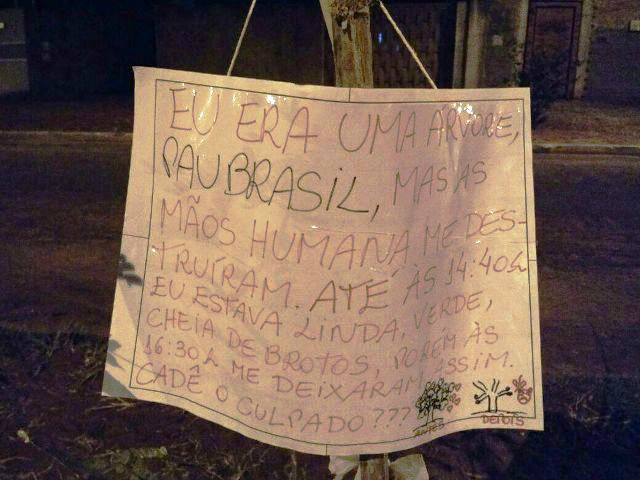 EU ERA UMA ÁRVORE,
PAU BRASIL, MAS AS
MÃOS HUMANA ME DES-
TRUÍRAM. ATÉ ÀS 14:40h
EU ESTAVA LINDA, VERDE,
CHEIA DE BROTOS, PORÉM ÀS
16:30h ME DEIXARAM ASSIM.
CADÊ O CULPADO ???
ANTES DEPOIS